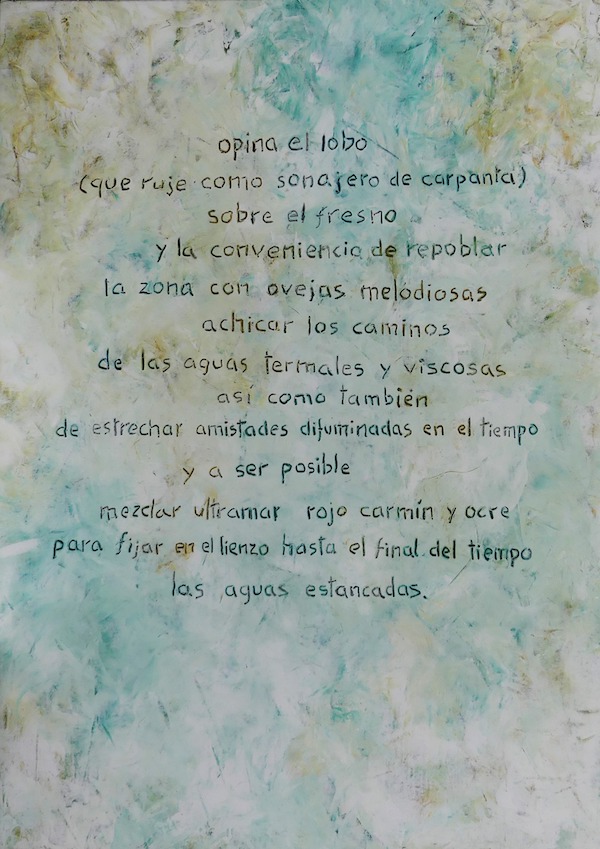 opina el lobo
(que ruje como sonajero de carpanta)
sobre el fresno
y la conveniencia de repoblar
la zona con ovejas melodiosas
achicar los caminos
de las aguas termales y viscosas
así como también
de estrechar amistades difuminadas en el tiempo
y a ser posible
mezclar ultramar rojo carmín y ocre
para fijar en el lienzo hasta el final del tiempo
las aguas estancadas.